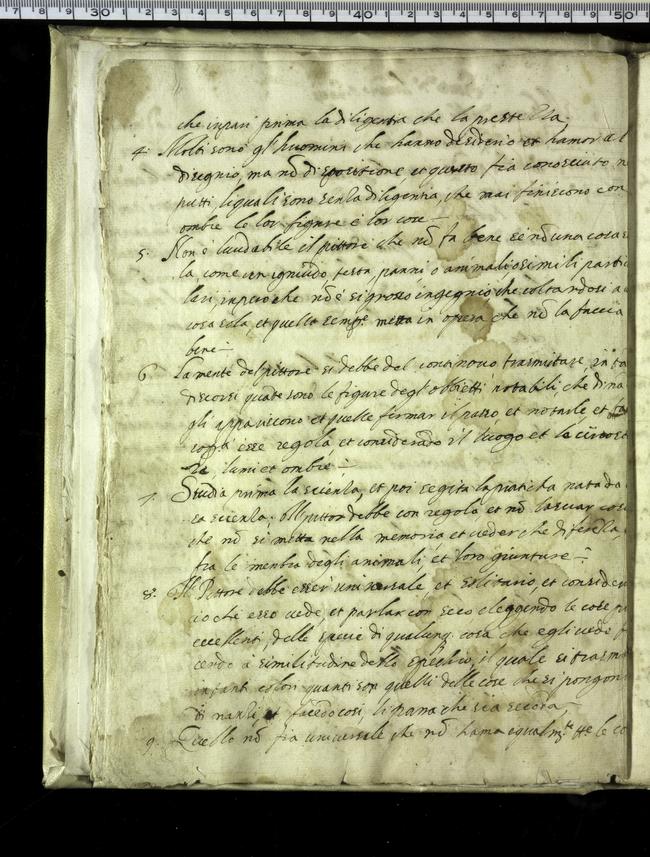 che inpari prima la diligentia che la prestezza
4. Molti sono gl'huomini che hanno desiderio et hamor al
disegnio, ma nō dispositione et questo fia conosciuto n
putti liquali sono senza diligentia, che mai finiscono con
ombre le lor figure e lor cose
5. Non è laudabile il pittore che nō fa bene se nō una cosa s
la, come un igniudo testa, panni, o animali o simili partic
lari, inp che nō è si grosso ingegnio che voltandosi a u
cosa sola, et quella semp. messa in opera che nō la faccia
bene
6 La mente del pittore si debbe del continovo trasmutare, in ta
discorsi quante sono le figure degl'obbietti notabili, che dina
gli appariscono et quelle fermar il passo et notarle, et
sopra esse regola, et considerādo il luogo et le circost
ze, lumi et ombre
7. Studia prima la scienza, et poi segita la praticha nata da
sa scienza; Il pittor debbe con regola et nō lasciar cosa
che nō si metta nella memoria et veder che diferēza
fra le membra degli animali, et loro giunture
8. Il Pittore debbe esser universale, et solitario, et consider
ciò che esso vede, et parlar con seco eleggendo le cose più
eccellenti, delle specie di qualunq. cosa che egli vede, f
cendo a similitudine dello specchio, il quale si trasm
in tanti colori quanti son quelli delle cose che si pongon
di nanzi, et facēdo così, li parrà che sia seconda
9. Quello nō fia universale che nō hama equalmte tte le co